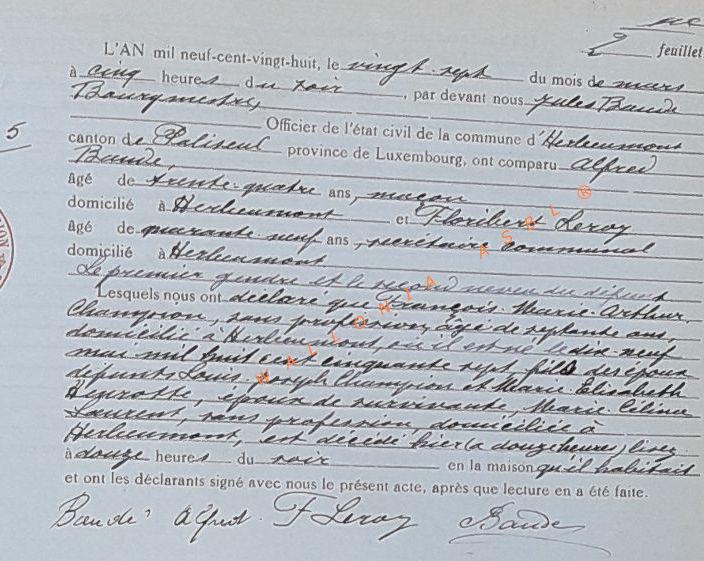 2 feuillet
L'AN mil neuf-cent-vingt-huit, le vingt-sept du mois de mars
à cinq heures du soir, par devant nous Jules Baude
Bourgmestre,
5
Officier de l'état civil de la commune d'Herbeumont
canton de Paliseul province de Luxembourg, ont comparu Alfred
Baude,
âgé de trente-quatre ans, maçon
domicilié à Herbeumont et Floribert Leroy
âgé de quarante-neuf ans, secrétaire communal
domicilié à Herbeumont
Le premier gendre et le second neveu du défunt
Lesquels nous ont déclaré que François-Marie-Arthur
Champion, sans profession, âgé de septante ans,
domicilié à Herbeumont, où il est né le dix-neuf
mai mil huit cent cinquante sept, fils des époux
défunts Louis-Joseph Champion et Marie-Elisabeth
époux de survivante, Marie-Céline
Laurent, sans profession, domiciliée à
Herbeumont, est décédé hier (a douze heures) lisez
à douze heures du soir en la maison qu'il habitait
et ont les déclarants signé avec nous le présent acte, après que lecture en a été faite.
Baude Alfred F Leroy Baude
WALLONIA ASBL ®